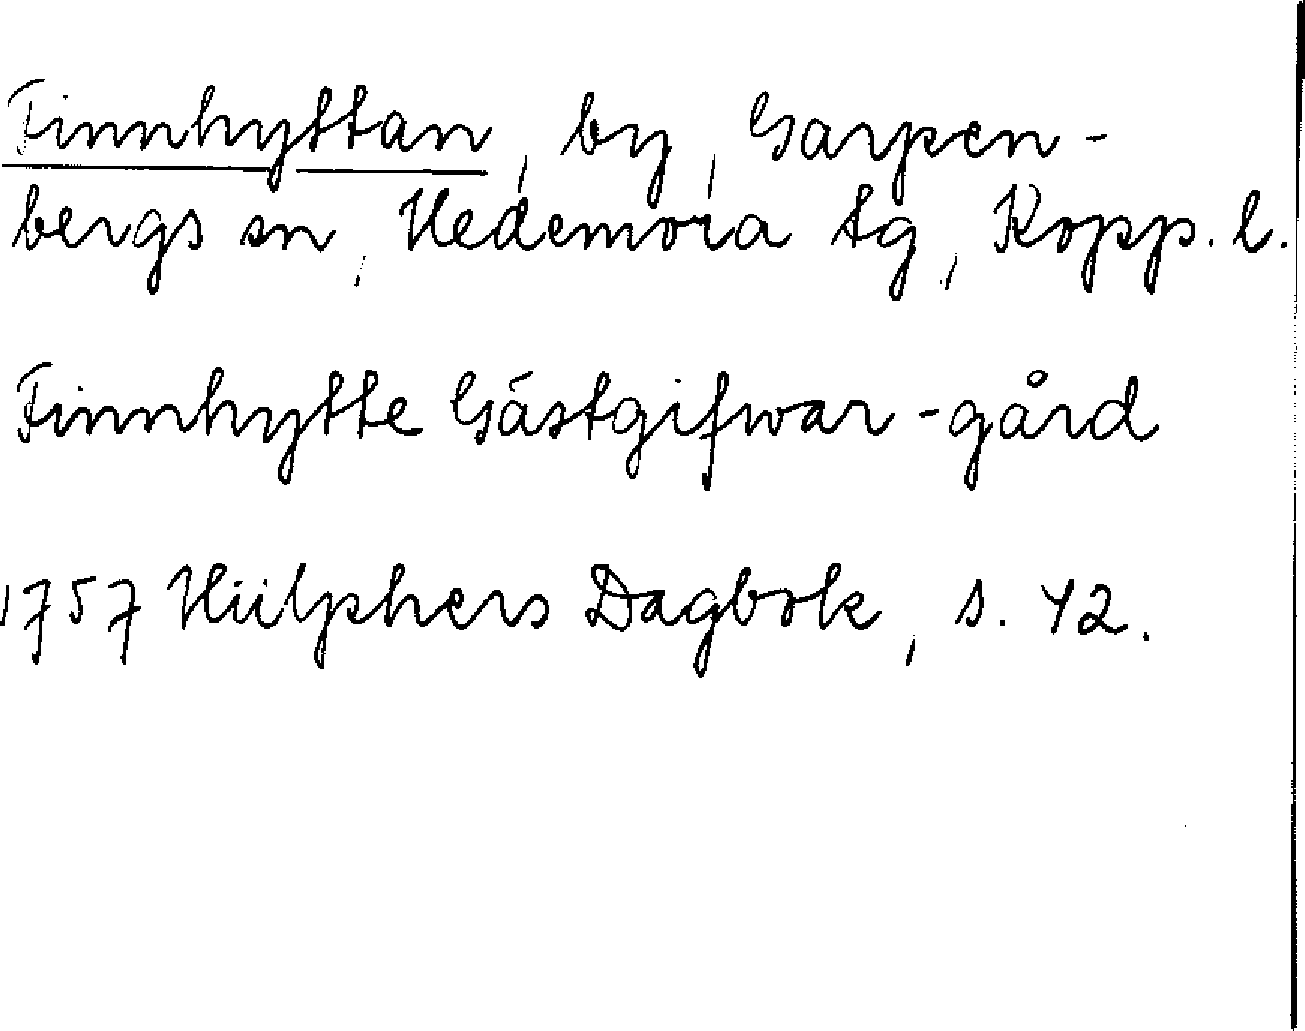 Finnhyttan, by, Garpen-
bergs sn, Hedemora tg, Kopp. l.
Finnhytte Gästgifwar-gård
1757 Hülphers Dagbok, s. 42.